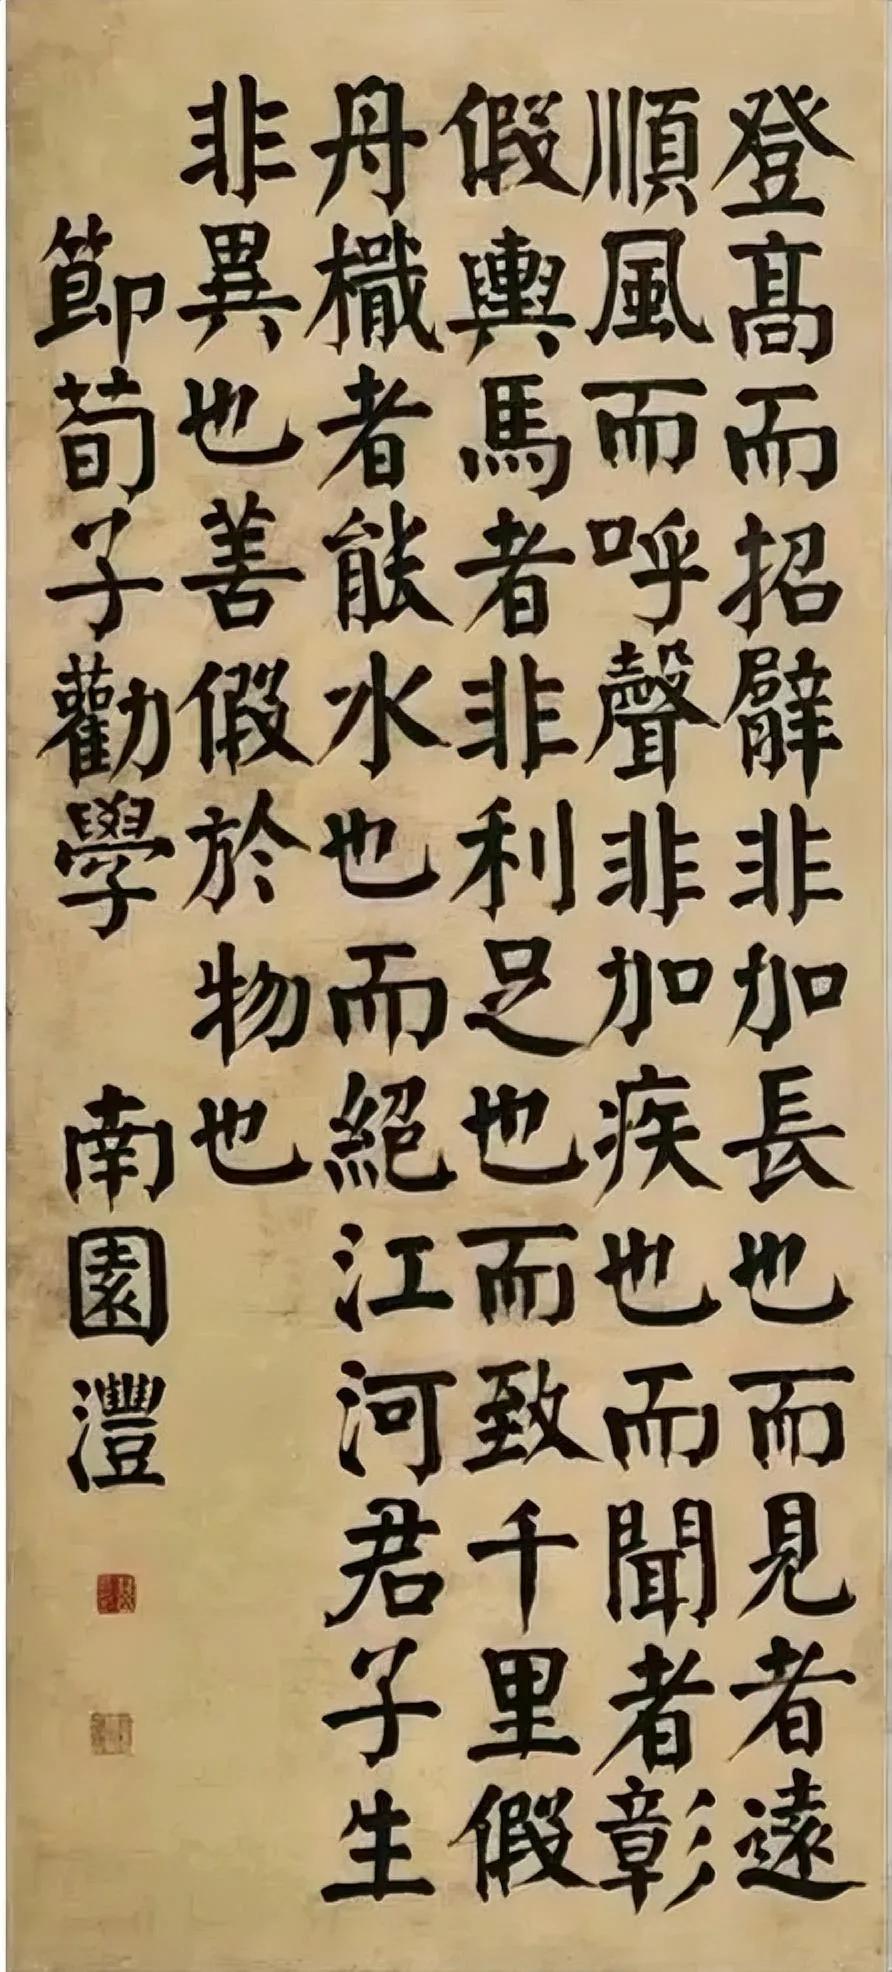 登高而招臂非加長也而見者遠
順風而呼聲非加疾也而聞者彰
假輿馬者非利足也而致千里假
舟檝者能水也而絕江河君子生
非異也善假於物也
節荀子勸學 南園灃